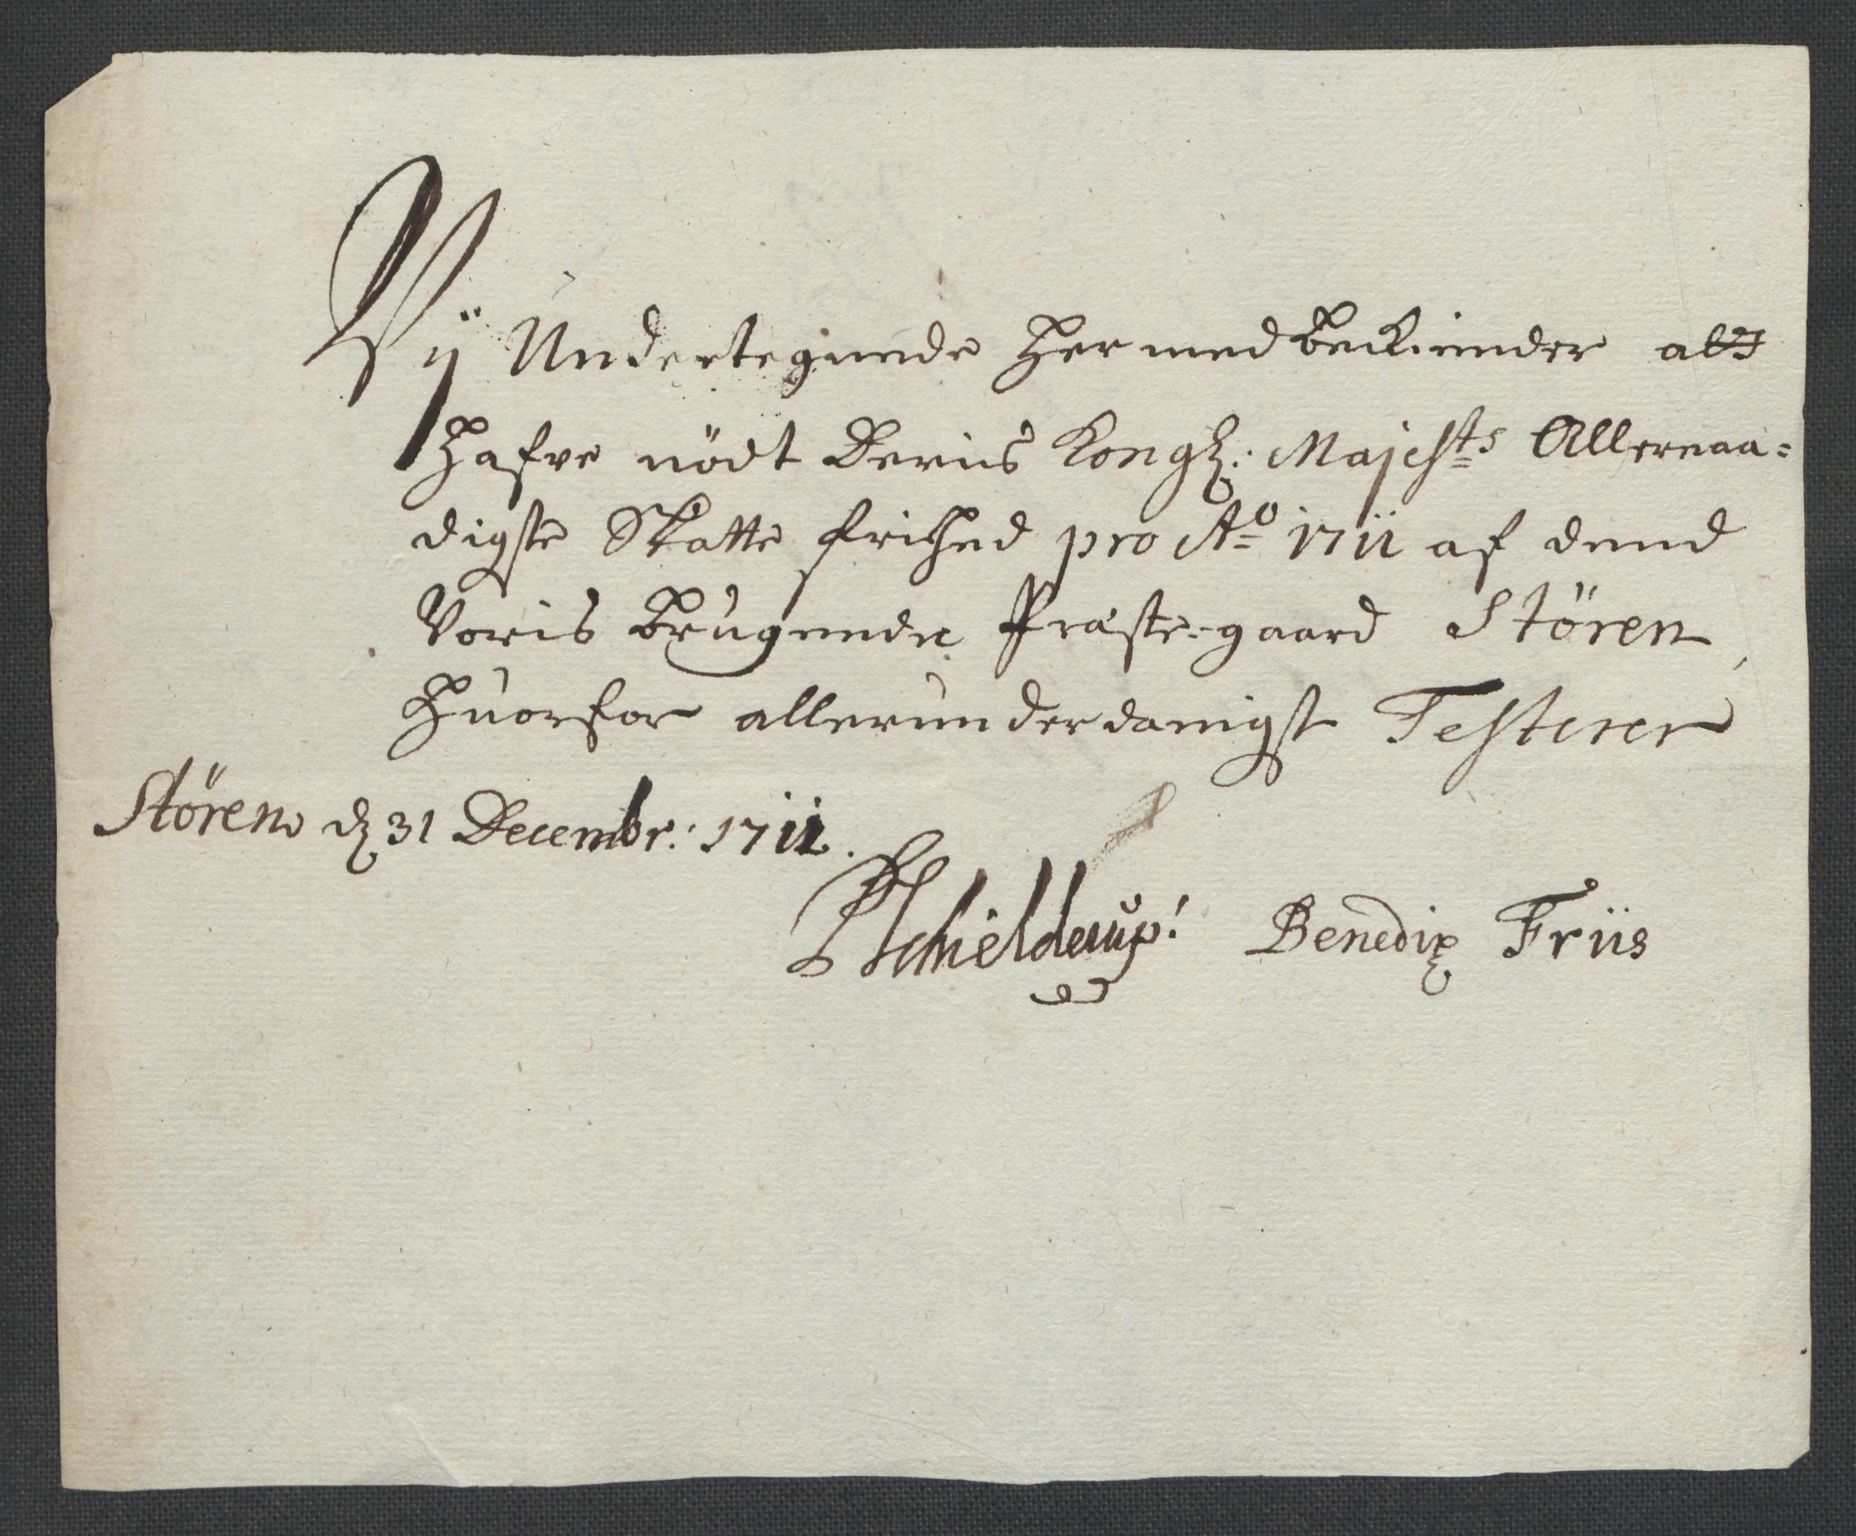 Vÿ Undertegnede Hermed beKiender att
Hafve nödt Deris Kongl: Majesᵗˢ Allernaa=
digste Skatte frihed pro Aº 1711 af dend
Voris brugende Præste-gaard Stören,
Huorfor allerunderdanigst Testerer
Stören d 31 Decembr: 1711.
PSchielderup! Benedix Friis